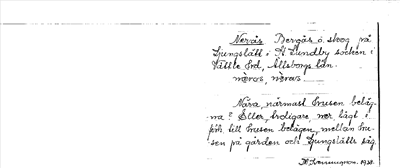 Nerås Bergås ö. skog på
Ljungslätt i St Lundby socken i
Vättle hd, Älvsborgs län.
neros, neros
Nära, närmast husen beläg-
na? Eller, troligare, ner, lågt i
förh. till husen belägen, mellan hu-
sen på gården och Ljungslätts såg
1938.